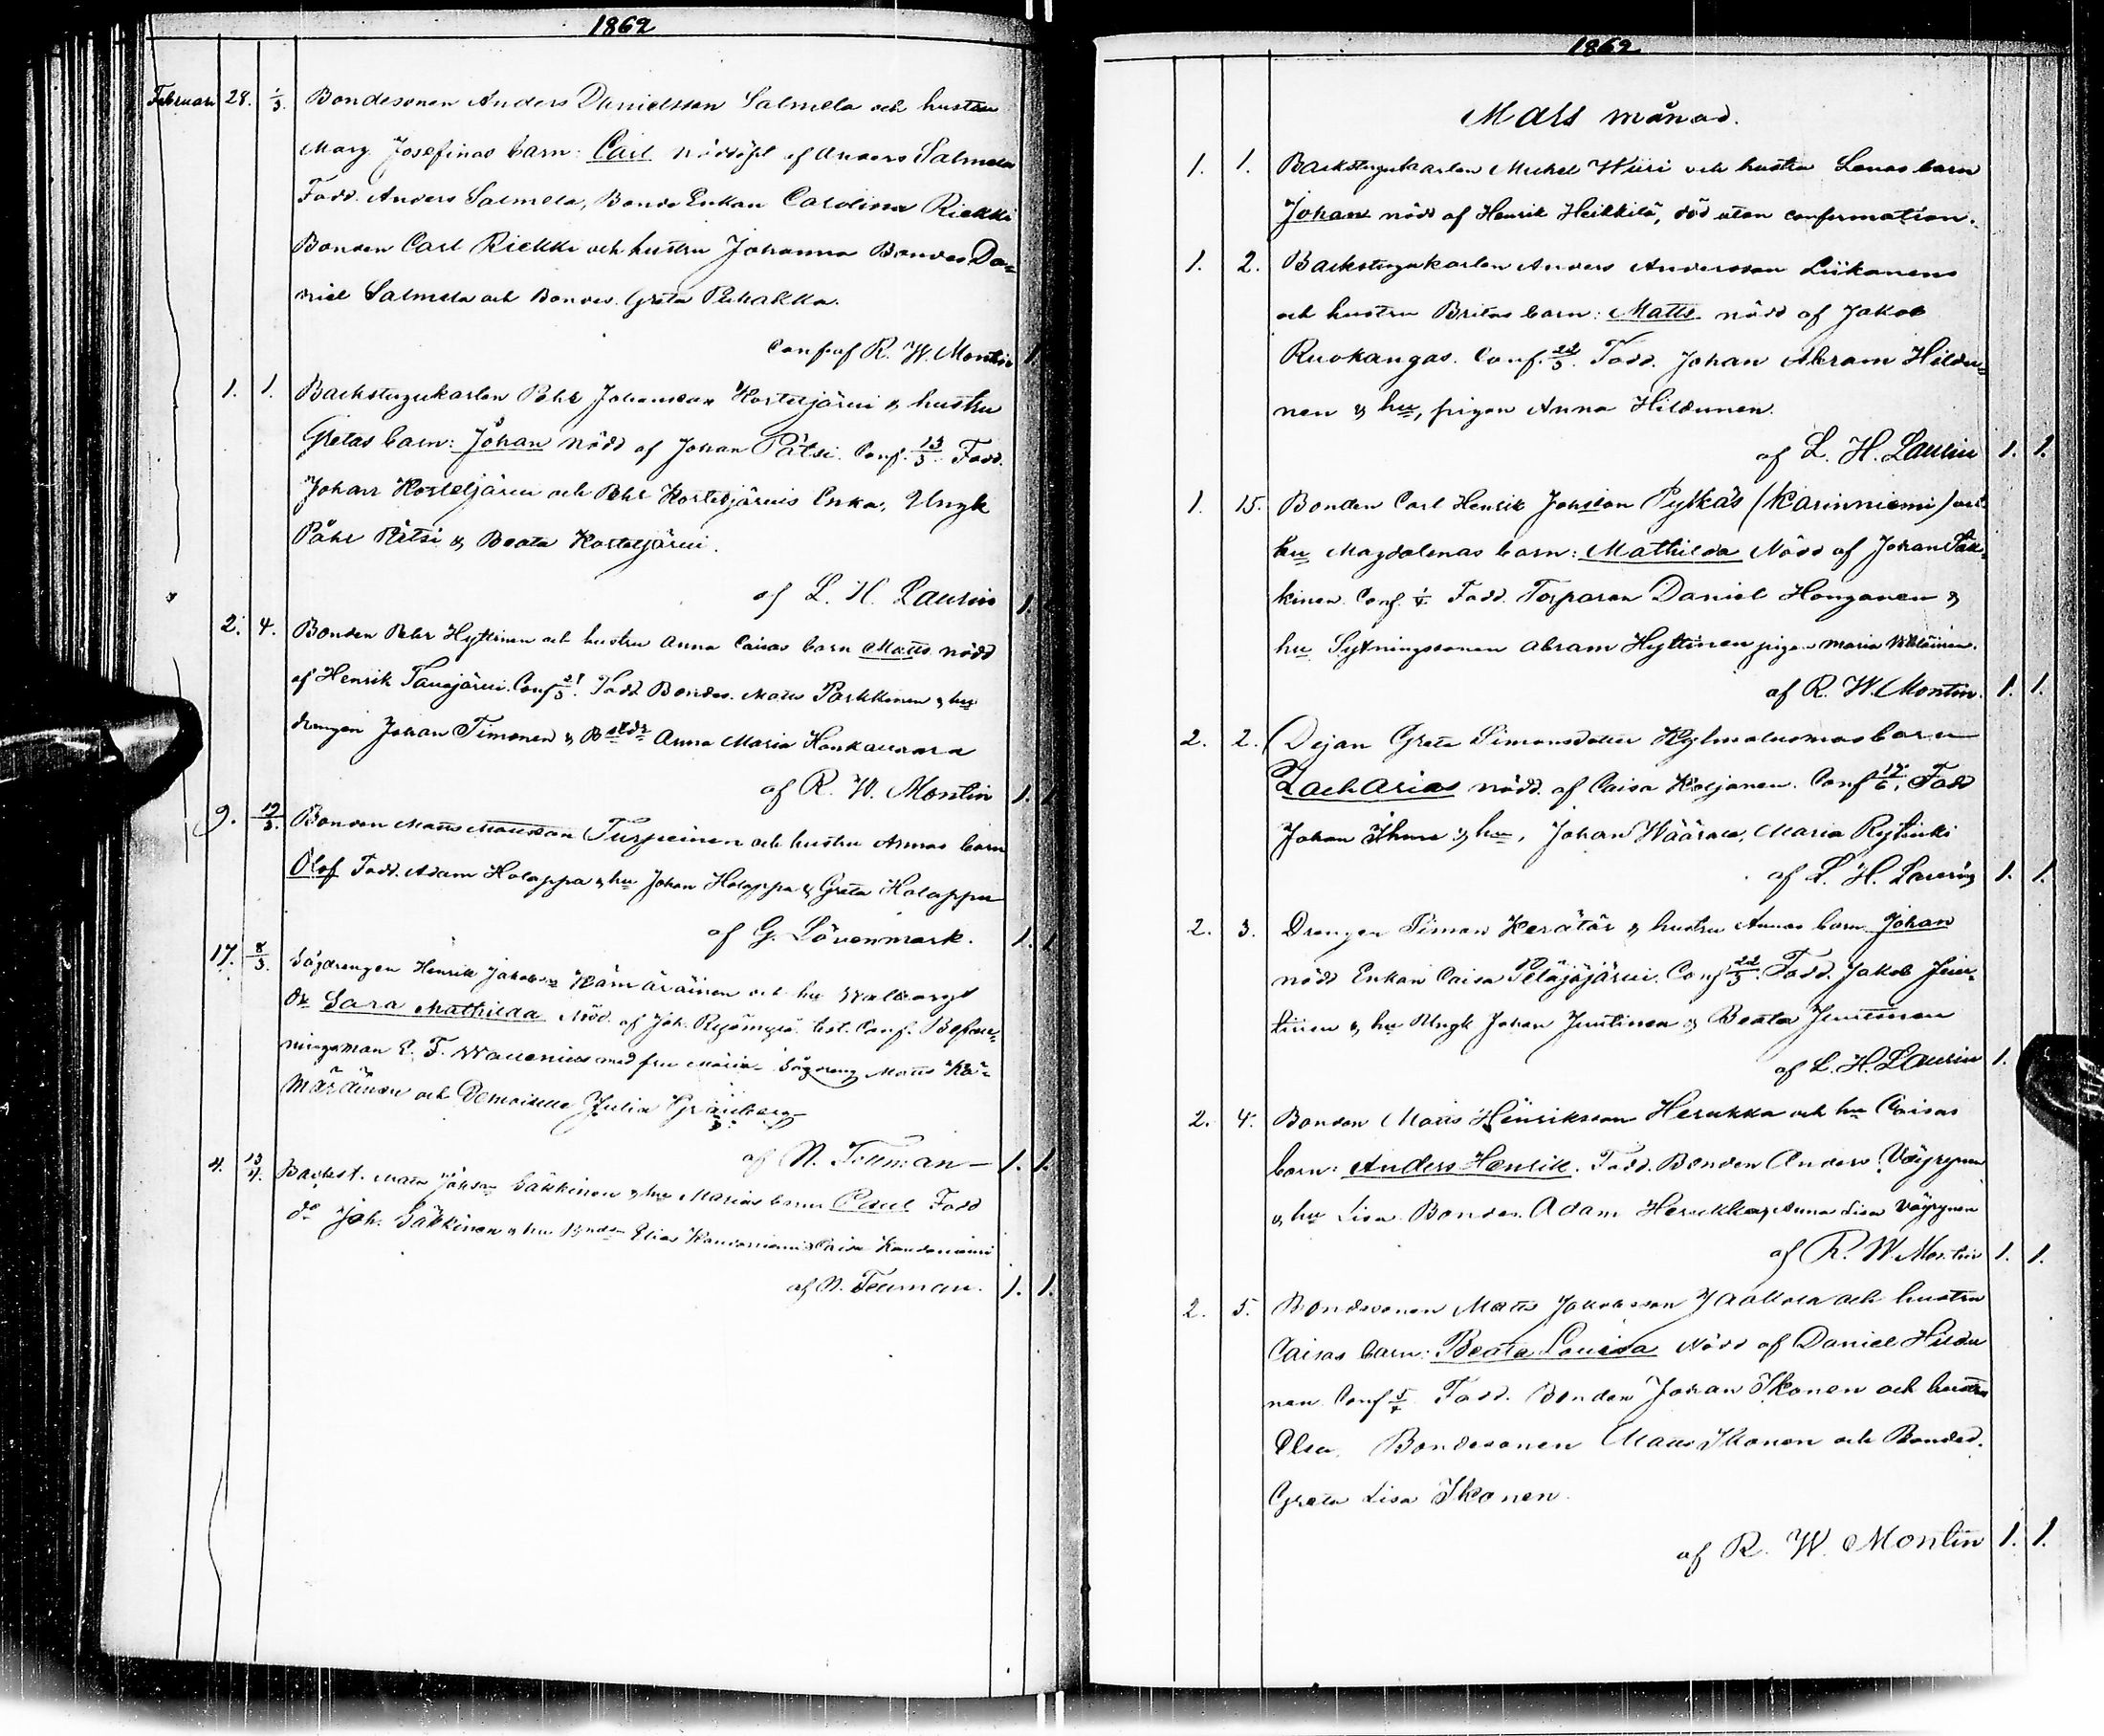 1862
Februari 28. 1/3. Bondesonen Anders Danielsson Salmela och hustru
Marg. Josefinas barn: Carl nöddöpt af Anders Salmela
Fadd. Anders Salmela, Bonde Enkan Carolina Riekki
Bonden Carl Riekki och hustru Johanna Bondes. Da-
niel Salmela och Bondes. Greta Puhakka.
Conf. af R. W. Montin 1.
1. 1. Backstugukarlen Pehr Johansson Kostetjärvi & hustru
Gretas barn: Johan nödd af Johan Pätsi. Conf. 13/3. Fadd.
Johan Kostetjärvi och Pehr Kostetjärvis Enka, Yngk
Påhl Pätsi & Beata Kostetjärvi.
af L. H. Laurin 1.
2. 4. Bonden Pehr Hyttinen och hustru Anna Caisas barn Matts nödd
af Henrik Tauajärvi. Conf 21/3. Fadd Bondes. Matts Parkkinen & hu
drengen Johan Timonen & Bdedr Anna Maria Kankaanvaara
af R. W. Montin 1. 1
9. 19/3. Bonden Matts Mattsson Turpeinen och hustru Annas barn
Olof Fadd. Adam Holappa & hu Johan Holappa & Greta Holappa
af G. Lövenmark. 1. 1
17. 8/3. Sågdrengen Henrik Jakobsn Kämäräinen och hu Walborgs
dr Sara Mathilda Nöd. af Joh. Conf. Befall-
ningsman E. F. Wallenius med fru Maria Sågdreng Matts Kä-
märäinen och Demoiselle Julia
af N. Fellman 1. 1.
4. 13/4. Backst. Matts Johsn Säkkinen & hu Marias barn Paul Fadd
do Joh. Säkkinen & hu Bnds Elias Kansanniemi & Caisa Kansanniemi
af N. Fellman. 1. 1.
1862
Mars månad.
1. 1. Backstugukarlen Michel Wiiri och hustru Lenas barn
Johan nödd af Henrik Heikkilä, död utan confirmation.
1. 2. Backstugukarlen Anders Andersson Liikanens
och hustru Britas barn: Matts nödd af Jakob
Ruokangas. Conf. 22/3. Fadd. Johan Abram Hildu-
nen & hu, pigan Anna Hildunen.
af L. H. Laurin 1. 1.
1. 15. Bonden Carl Henrik Johsson Pylkäs (Karinniemi) och
hu Magdalenas barn: Mathilda Nödd af Johan Säk-
kinen. Conf. Fadd. Torparen Daniel Honganen &
hu Sytningssonen Abram Hyttinen pigan Maria
af R. W. Montin. 1. 1.
2. 2. Dejan Greta Simonsdotter Kylmäluomas barn
Zacharias nödd. af Caisa Karjanen. Conf 17/6. Fadd
Johan Ihme & hu, Johan Määttä, Maria Rytinki
af L. H. Laurin 1. 1.
2. 3. Drengen Simon Kerätär & hustru Annas barn Johan
nödd Enkan Caisa Petäjäjärvi. Conf 22/3. Fadd. Jakob Jun-
tinen & hu Yngk Johan Juntinen & Beata Juntinen
af L. H. Laurin 1.
2. 4. Bonden Matts Henriksson Herukka och hu Caisas
barn: Anders Henrik. Fadd. Bonden Anders Väyrynen
& hu Lisa. Bondes. Adam Herukka & Anna Lisa Väyrynen
af R. W. Montin 1. 1.
2. 5. Bondesonen Matts Jakobsson Jaakola och hustru
Caisas barn: Beata Lovisa Nödd af Daniel Hildu
nen Conf 5/4. Fadd. Bonden Johan Ikonen och hustru
Elsa. Bondesonen Matts Ikonen och Bonded.
Greta Lisa Ikonen.
af R. W. Montin 1. 1.